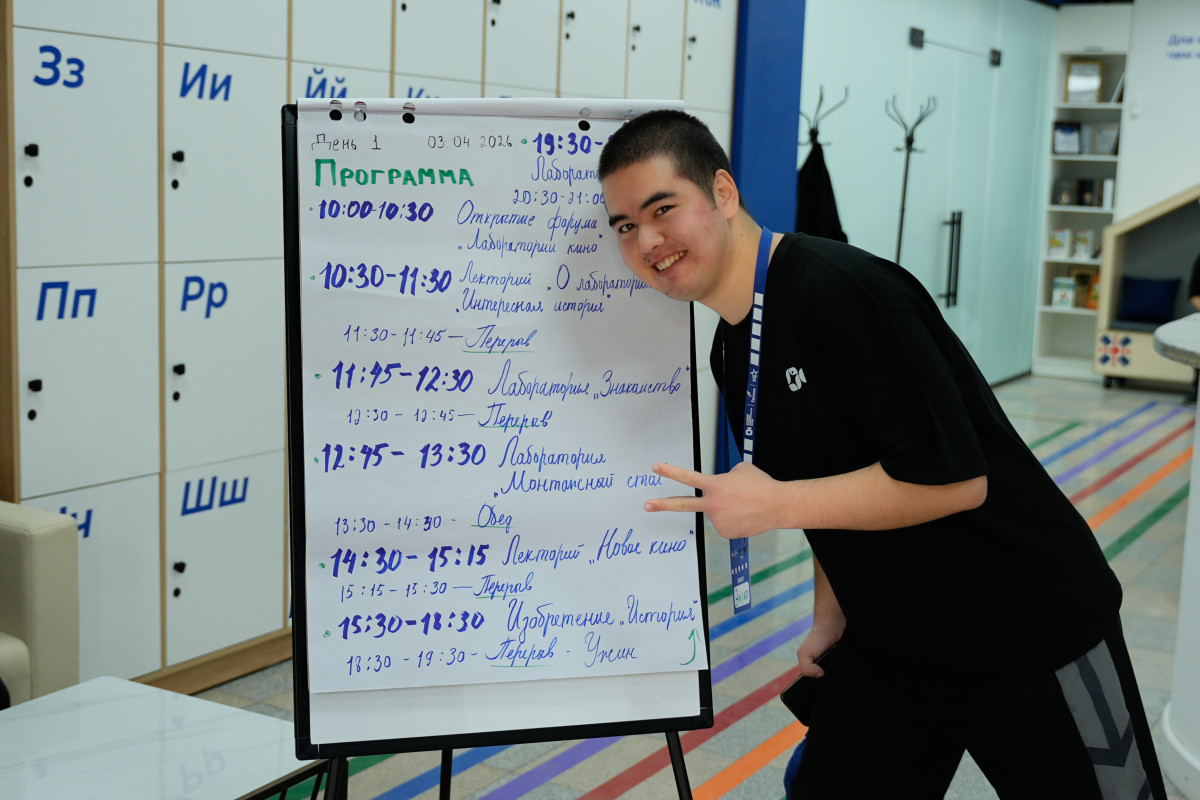 Зз
Ии
Йй
Пп
Рр
Шш
День 1 03.04.2026
Программа
10:00-10:30 Открытие форума
„Лаборатории кино"
10:30-11:30 Лекторий „О лаборатории
„Интересная история"
11:30-11:45 — Перерыв
11:45-12:30 Лаборатория „Знакомство"
12:30 - 12:45 — Перерыв
12:45 - 13:30 Лаборатория
„Монтажный стол
13:30 - 14:30 - Обед
14:30 - 15:15 Лекторий „Новое кино"
15:15 - 15:30 — Перерыв
15:30-18:30 Изобретение „История"
18:30 - 19:30 - Перерыв - Ужин
19:30-
20:30-21:00